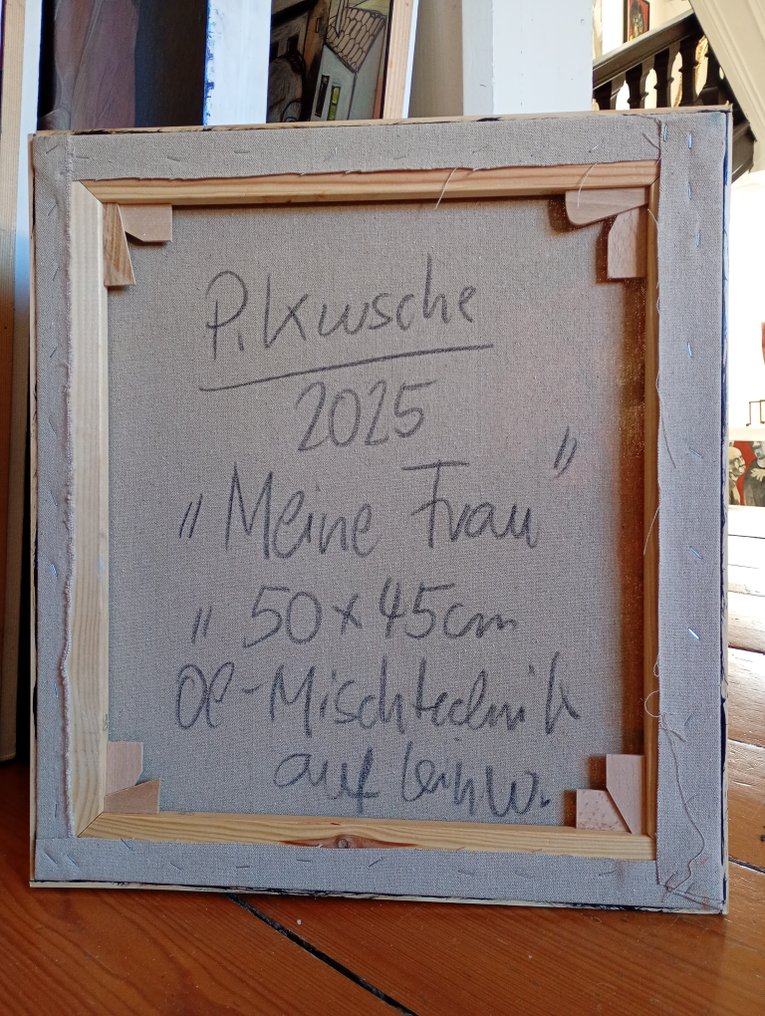 P. Kwsche
2025
"Meine Frau"
" 50 x 45cm
Öl-Mischtechnik
auf Leinw.